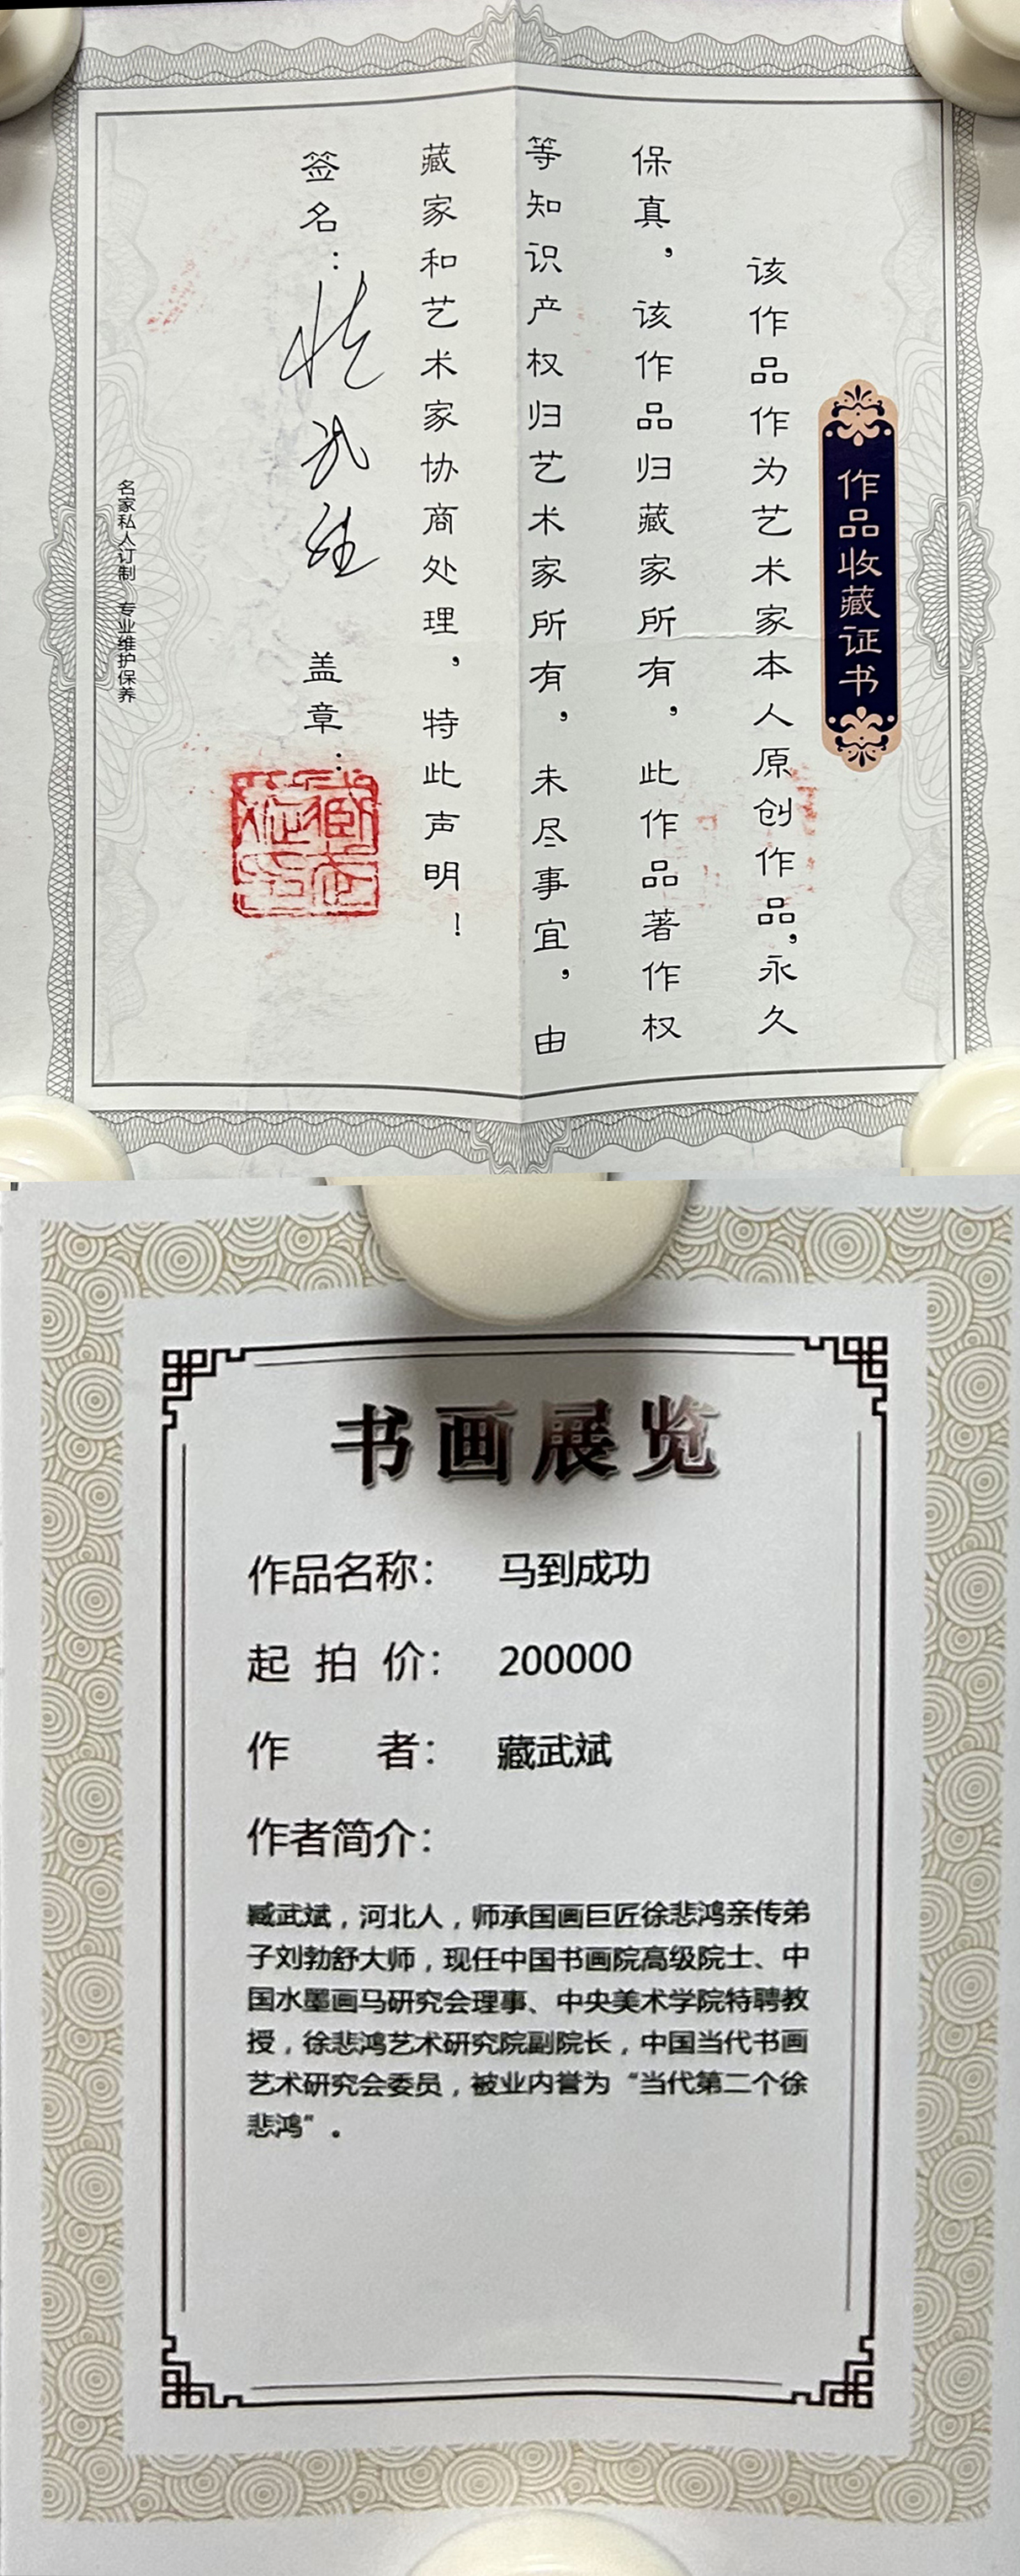 作品收藏证书
该作品作为艺术家本人原创作品，永久
保真，该作品归藏家所有，此作品著作权
等知识产权归艺术家所有，未尽事宜，由
藏家和艺术家协商处理，特此声明！
签名： 盖章：
名家私人订制 专业维护保养
书画展览
作品名称： 马到成功
起拍价： 200000
作者： 藏武斌
作者简介：
臧武斌，河北人，师承国画巨匠徐悲鸿亲传弟
子刘勃舒大师，现任中国书画院高级院士、中
国水墨画马研究会理事、中央美术学院特聘教
授，徐悲鸿艺术研究院副院长，中国当代书画
艺术研究会委员，被业内誉为“当代第二个徐
悲鸿”。